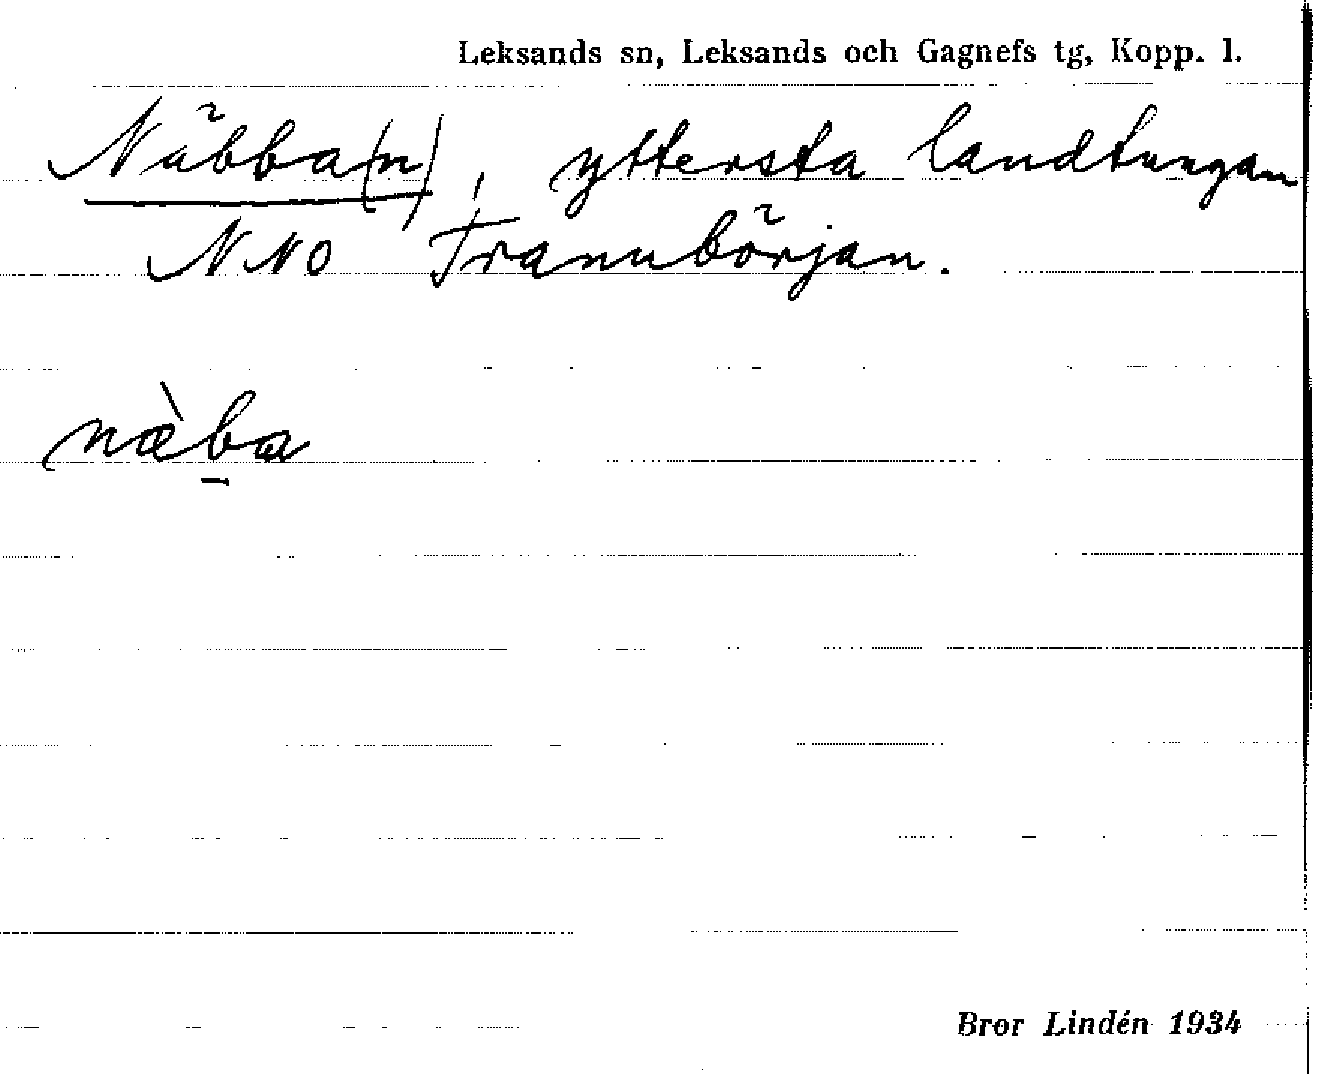 Leksands sn, Leksands och Gagnefs tg, Kopp. l.
Näbba(n), yttersta landtungan
NNO Tranubörjan.
næ̀ba
Bror Lindén 1934